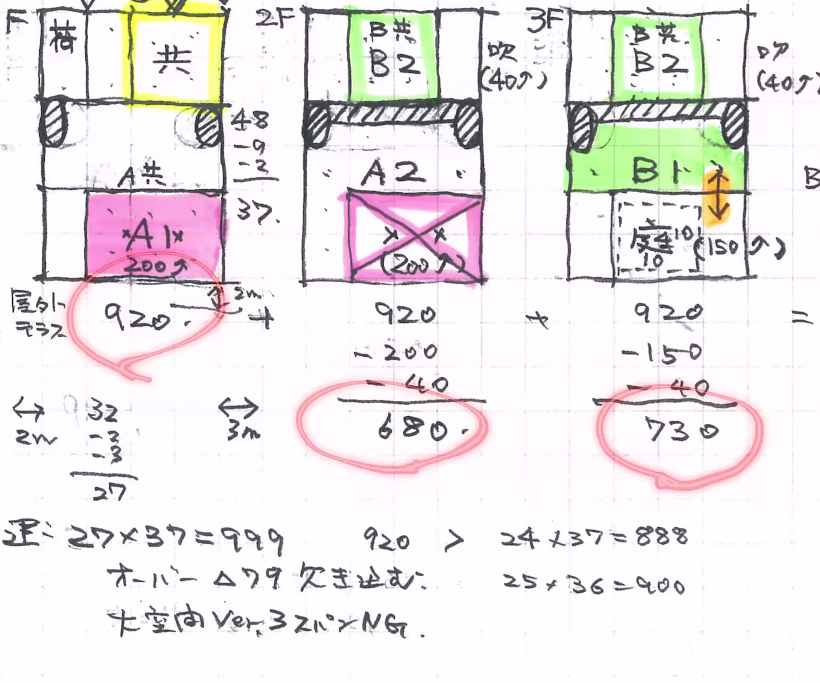 F
2F
3F
椅
共
B共
B2
吹
(40㎡)
B共
B2
吹
(40㎡)
48
-9
-2
37.
A共
A2
B1
B
A1
200㎡
(200㎡)
10
10
(150㎡)
屋外
テラス
920.
2m
+
920
-200
-40
680.
+
920
-150
-40
730
=
↔
2m
32
-3
-3
27
↔
3m
27×37=999
920 > 24×37=888
オーバー △79 欠き込む.
25×36=900
大空間 Ver. 3スパンNG.